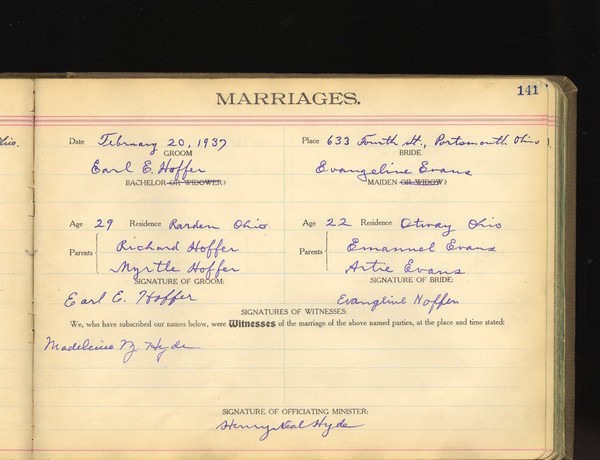 141
MARRIAGES.
Date February 20, 1937 Place 633 Fourth St., Portsmouth Ohio
GROOM BRIDE
Earl E. Hoffer Evangeline Evans
BACHELOR OR WIDOWER) MAIDEN OR WIDOW)
Age 29 Residence Rarden Ohio Age 22 Residence Otway Ohio
Parents Richard Hoffer Parents Emanuel Evans
Myrtle Hoffer Artie Evans
SIGNATURE OF GROOM: SIGNATURE OF BRIDE:
Earl E. Hoffer Evangline Hoffer
SIGNATURES OF WITNESSES:
We, who have subscribed our names below, were Witnesses of the marriage of the above named parties, at the place and time stated:
Madeleine Hyde
SIGNATURE OF OFFICIATING MINISTER:
Henry Neal Hyde